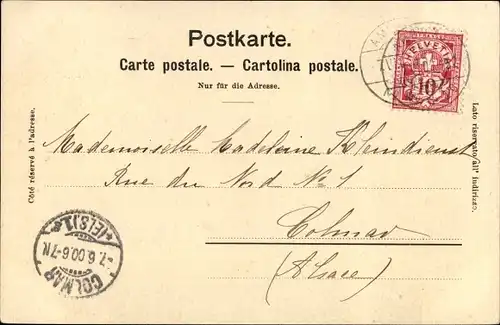 Postkarte.
Carte postale. — Cartolina postale.
Nur für die Adresse.
HELVETIA
10
Côté réservé à l'adresse.
Lato riservato all' indirizzo.
Mademoiselle Madeleine Kleindienst
Rue du Nord No 1
Colmar
(Alsace)
COLMAR
7.6.00.6-7N.
(ELS) 1